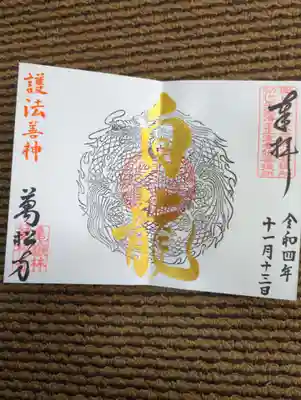 奉拝
令和四年
十一月十三日
白龍
護法善神
萬松寺